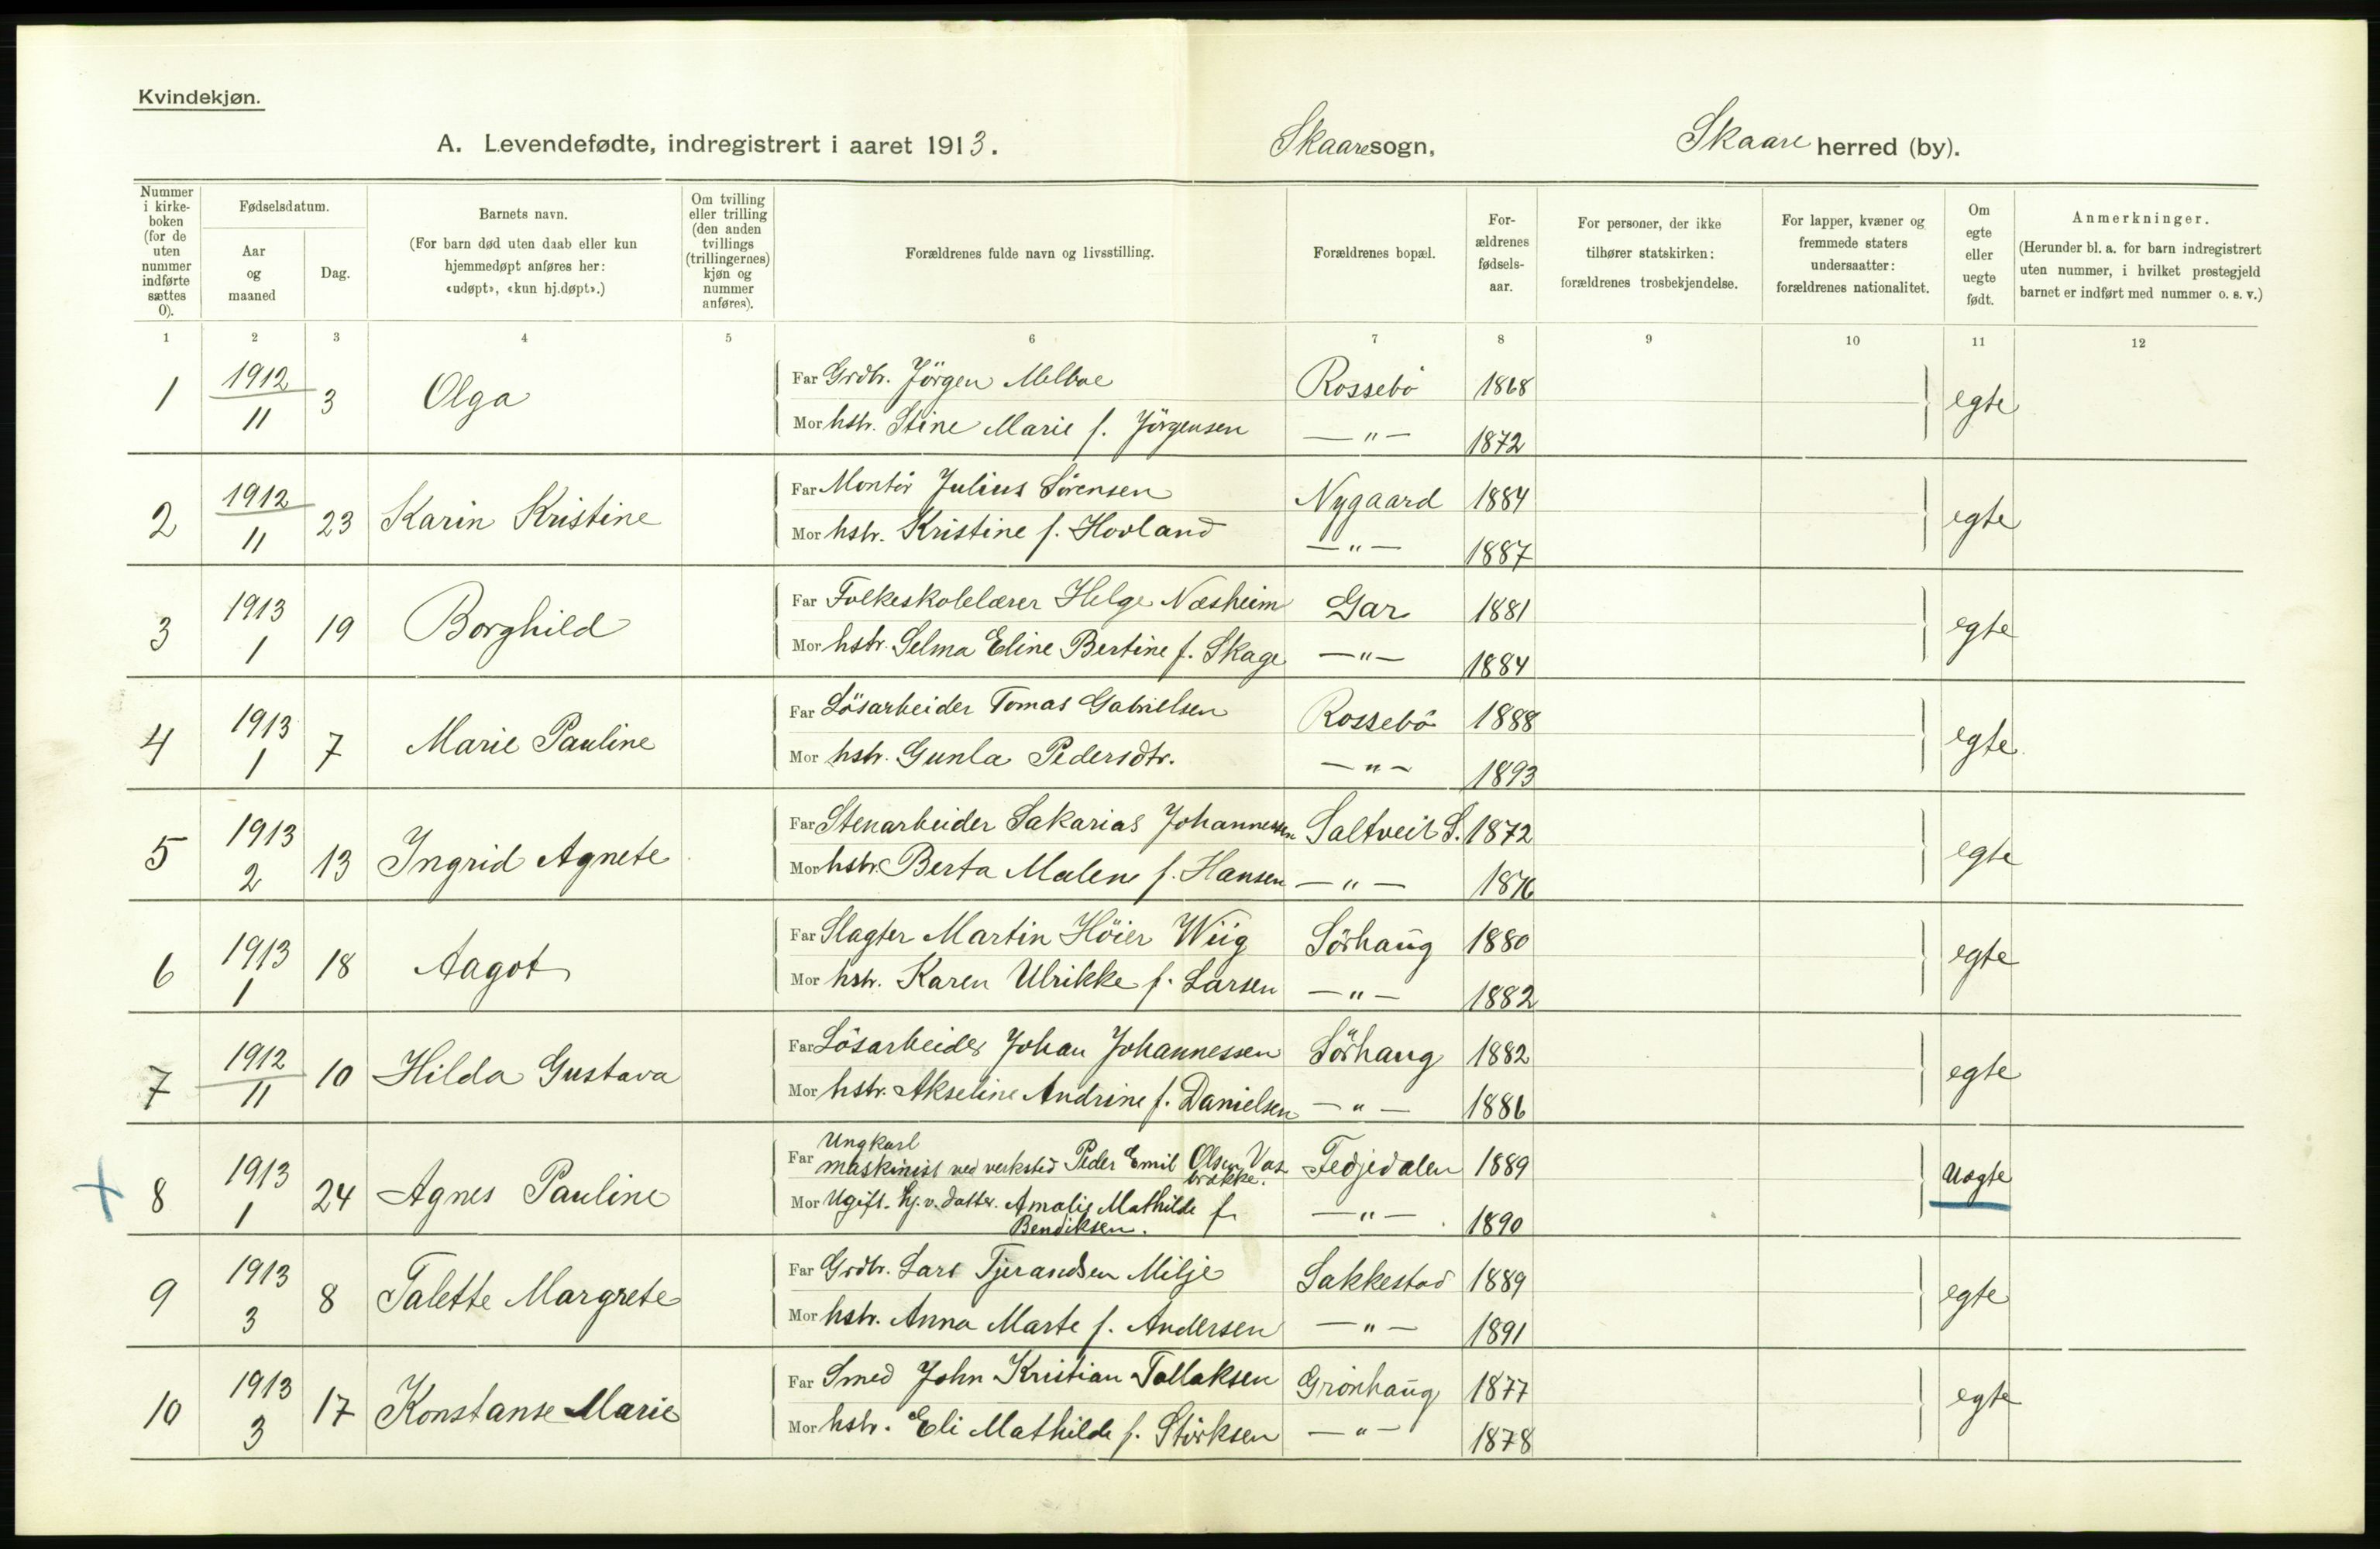 Kvindekjøn.
A. Levendefødte, indregistrert i aaret 1913. Skaare sogn, Skaare herred (by).
Nummer i kirkeboken (for de uten nummer indførte sættes 0).
Fødselsdatum.
Aar og maaned
Dag.
Barnets navn.
(For barn død uten daab eller kun hjemmedøpt anføres her: «udøpt», «kun hj.døpt».)
Om tvilling eller trilling (den anden tvillings (trillingernes) kjøn og nummer anføres).
Forældrenes fulde navn og livsstilling.
Forældrenes bopæl.
Forældrenes fødselsaar.
For personer, der ikke tilhører statskirken: forældrenes trosbekjendelse.
For lapper, kvæner og fremmede staters undersaatter: forældrenes nationalitet.
Om egte eller uegte født.
Anmerkninger.
(Herunder bl. a. for barn indregistrert uten nummer, i hvilket prestegjeld barnet er indført med nummer o. s. v.)
1 2 3 4 5 6 7 8 9 10 11 12
1 1912 11 3 Olga Far Grdbr. Jörgen Melboe Rossebö 1868 egte
Mor hstr. Stine Marie f. Jörgensen —"— 1872
2 1912 11 23 Karin Kristine Far Montör Julius Sörensen Nygaard 1884 egte
Mor hstr. Kristine f. Hovland —"— 1887
3 1913 1 19 Borghild Far Folkeskolelærer Helge Næsheim Gar 1881 egte
Mor hstr. Selma Eline Bertine f. Skage —"— 1884
4 1913 1 7 Marie Pauline Far Lösarbeider Tomas Gabrielsen Rossebö 1888 egte
Mor hstr. Gunla Pedersdtr. —"— 1893
5 1913 2 13 Ingrid Agnete Far Stenarbeider Sakarias Johannessen Saltveit S. 1872 egte
Mor hstr. Berta Malene f. Hansen —"— 1876
6 1913 1 18 Aagot Far Slagter Martin Höier Wiig Sörhaug 1880 egte
Mor hstr. Karen Ulrikke f. Larsen —"— 1882
7 1912 11 10 Hilda Gustava Far Lösarbeider Johan Johannessen Sörhaug 1882 egte
Mor hstr. Akseline Andrine f. Danielsen —"— 1886
8 1913 1 24 Agnes Pauline Far Ungkarl maskinist ved verksted Peder Emil Olsen Vasbrække. Fedjedalen 1889 Uegte
Mor Ugift. hj.v. datter. Amalie Mathilde f. Bendiksen. —"— 1890
9 1913 3 8 Talette Margrete Far Grdbr. Lars Tjerandsen Milje Sakkestad 1889 egte
Mor hstr. Anna Marte f. Andersen —"— 1891
10 1913 3 17 Konstanse Marie Far Smed John Kristian Tollaksen Grönhaug 1877 egte
Mor hstr. Eli Mathilde f. Störksen —"— 1878